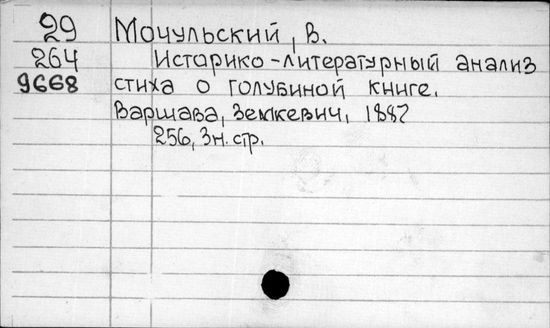 29 Мочульский, В.
264 Историко-литературный анализ
9668 стиха о голубиной книге.
Варшава, Земкевич, 1887
256, 3н. стр.